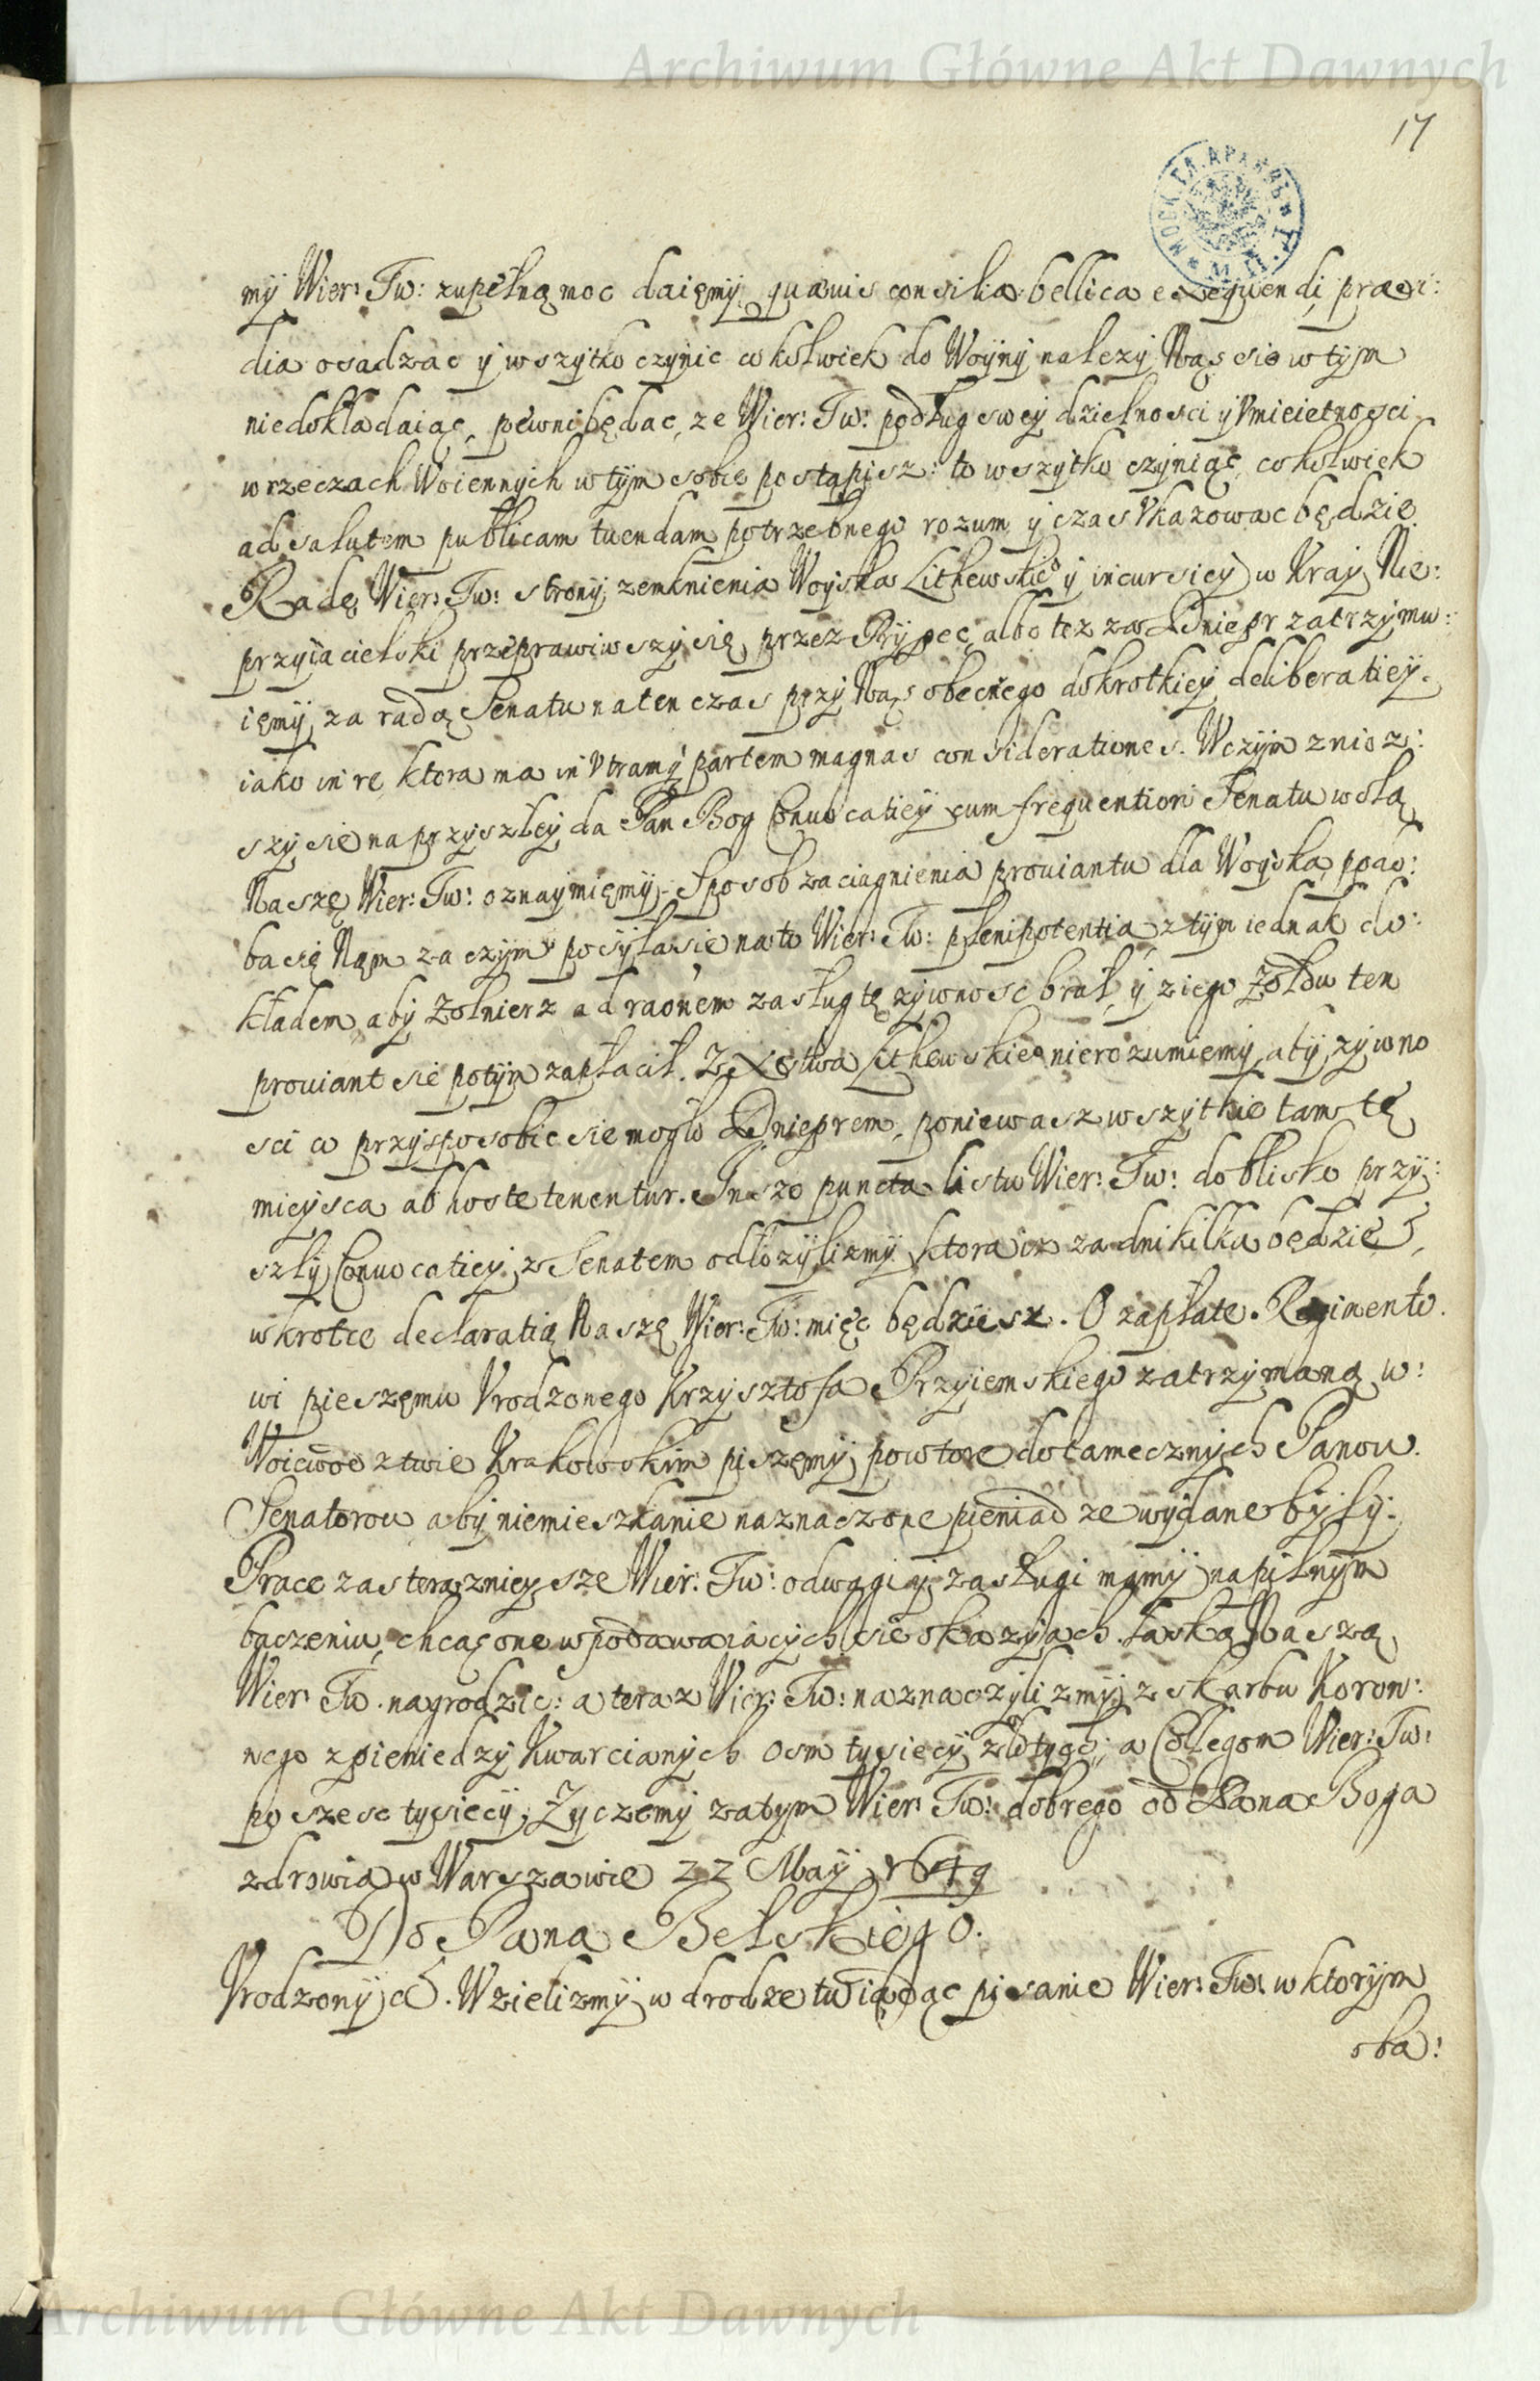 Archiwum Główne Akt Dawnych
17
my Wier: Tw: zupełną moc daięmy quavis consilia bellica exequendi, praesi:
dia osadzac y wszytko czynic cokolwiek do Woyny nalezy Nas sie w tym
niedokładaiąc, pewni będac, ze Wier: Tw: podług swey dzielnosci y Vmieietnosci
w rzeczach Woiennych w tym sobie postąpisz: to wszytko czyniąc, cokolwiek
ad salutem publicam tuendam potrzebnego rozum y czas Vkazowac będzie
Radę Wier: Tw: strony zemknienia Woyska Lithewskieo y incursiey w Kray Nie:
przyiacielski przeprawiwszy się przez Prypec, albo tez za Dniepr zatrzymu:
ięmy, za radą Senatu na ten czas przy Nas obecnego do krotkiey deliberatiey.
iako in re ktora ma in Vtramq partem magnas considerationes. W czym znioz:
szy sie na przyszley da Pan Bog Conuocatiey cum frequentiori Senatu wolą
Naszę Wier: Tw: oznaymięmy. Sposob zaciagnienia prouiantu dla Woyska podo:
ba się Nam zaczym posyła sie na to Wier: Tw: plenipotentia, z tym iednak do:
kładem aby Zołnierz ad raonem zasług tę zywnosc brał, y z iego Zołdu ten
prouiant sie potym zapłacił. Z Xstwa Lithewskieo nierozumiemy aby zywno
sci co przysposobic sie mogło Dnieprem, poniewasz wszytkie tamte
mieysca ab hoste tenentur. Insze puncta listu Wier: Tw: do blisko przy:
szły Conuocatiey z Senatem odłozylizmy ktora iz za dni kilka będzie,
wkrotce declaratią Naszę Wier: Tw: mięc będziesz. O zapłate Regimento
wi pieszęmu Vrodzonego Krzysztofa Przyiemskiego zatrzymaną w:
Woiewodztwie Krakowskim piszęmy powtore do tamecznych Panow
Senatorow aby niemieszkanie naznaczone pieniadze wydane były.
Prace zas teraznieysze Wier: Tw: odwagi y zasługi mamy na pilnym
baczeniu, chcąc one w podawaiacych sie okazyiach łaską Naszą
Wier: Tw. nagrodzic: a teraz Wier: Tw: naznaczylizmy z skarbu Koron:
nego z pieniedzy Kwarcianych Osm tysiecy złotych; a Collegom Wier: Tw:
po szesc tysiecy; Zyczemy zatym Wier: Tw: dobrego od Pana Boga
zdrowia w Warszawie 22 May 1649
Do Pana Bełskiego.
Vrodzony &. Wzielizmy w drodze tu iadąc pisanie Wier: Tw: w ktorym
oba:
Archiwum Główne Akt Dawnych